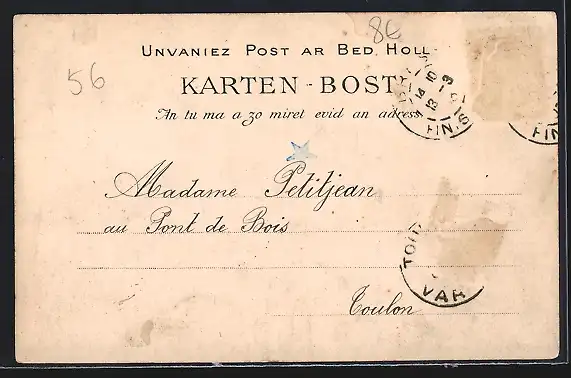 86
56
UNVANIEZ POST AR BED HOLL
KARTEN-BOST
An tu ma a zo miret evid an adress
14 10
13
FINIS
FIN
Madame Petitjean
au Pont de Bois
TOUL
VAR
Toulon